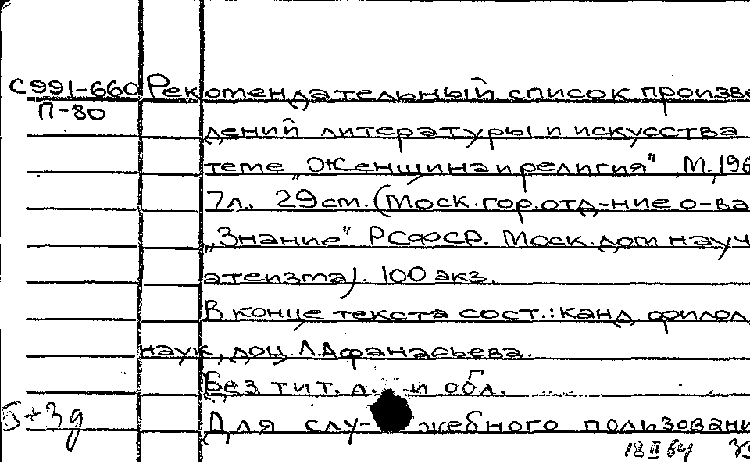 С991-660 Рекомендательный список произве
П-80
дений литературы и искусства
теме „Женщина и религия" М.,196
7л. 29 см. (Моск.гор.отд-ние о-ва
„Знание" РСФСР. Моск.дом науч
атеизма). 100 экз.
В конце текста сост.: канд филол
наук, доц Л.Афанасьева.
Без тит. л. и обл.
Для слу- жебного ползовани
18 II 64